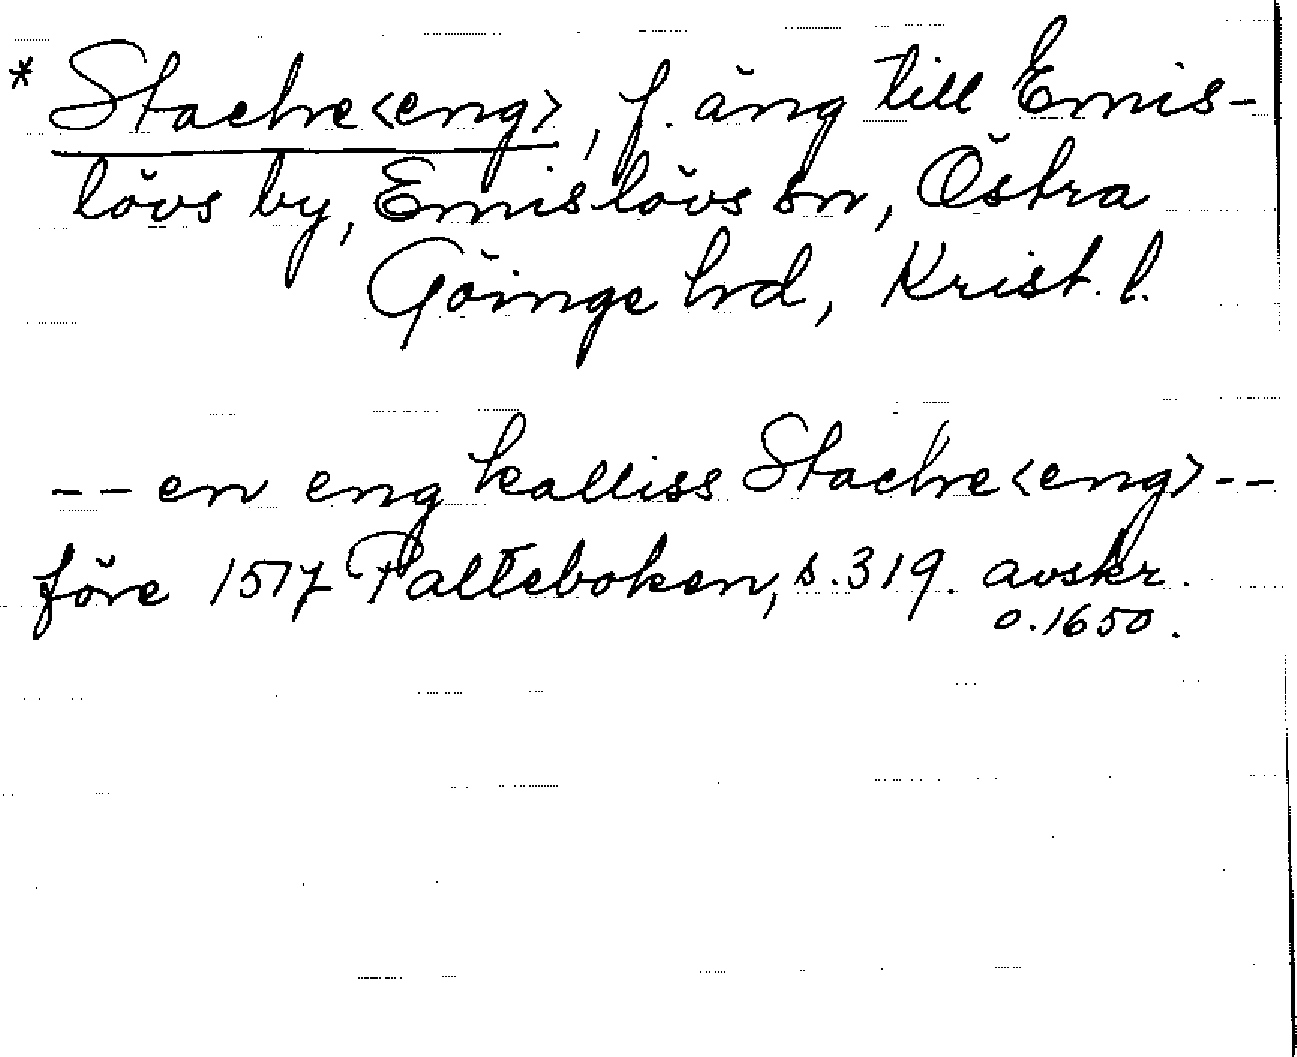 * Stachre<eng>, f. äng till Emis-
lövs by, Emislövs sn, Östra
Göinge hrd, Krist. l.
-- en eng kalliss Stachre<eng> --
före 1517 Palteboken, s. 319. avskr.
o. 1650.